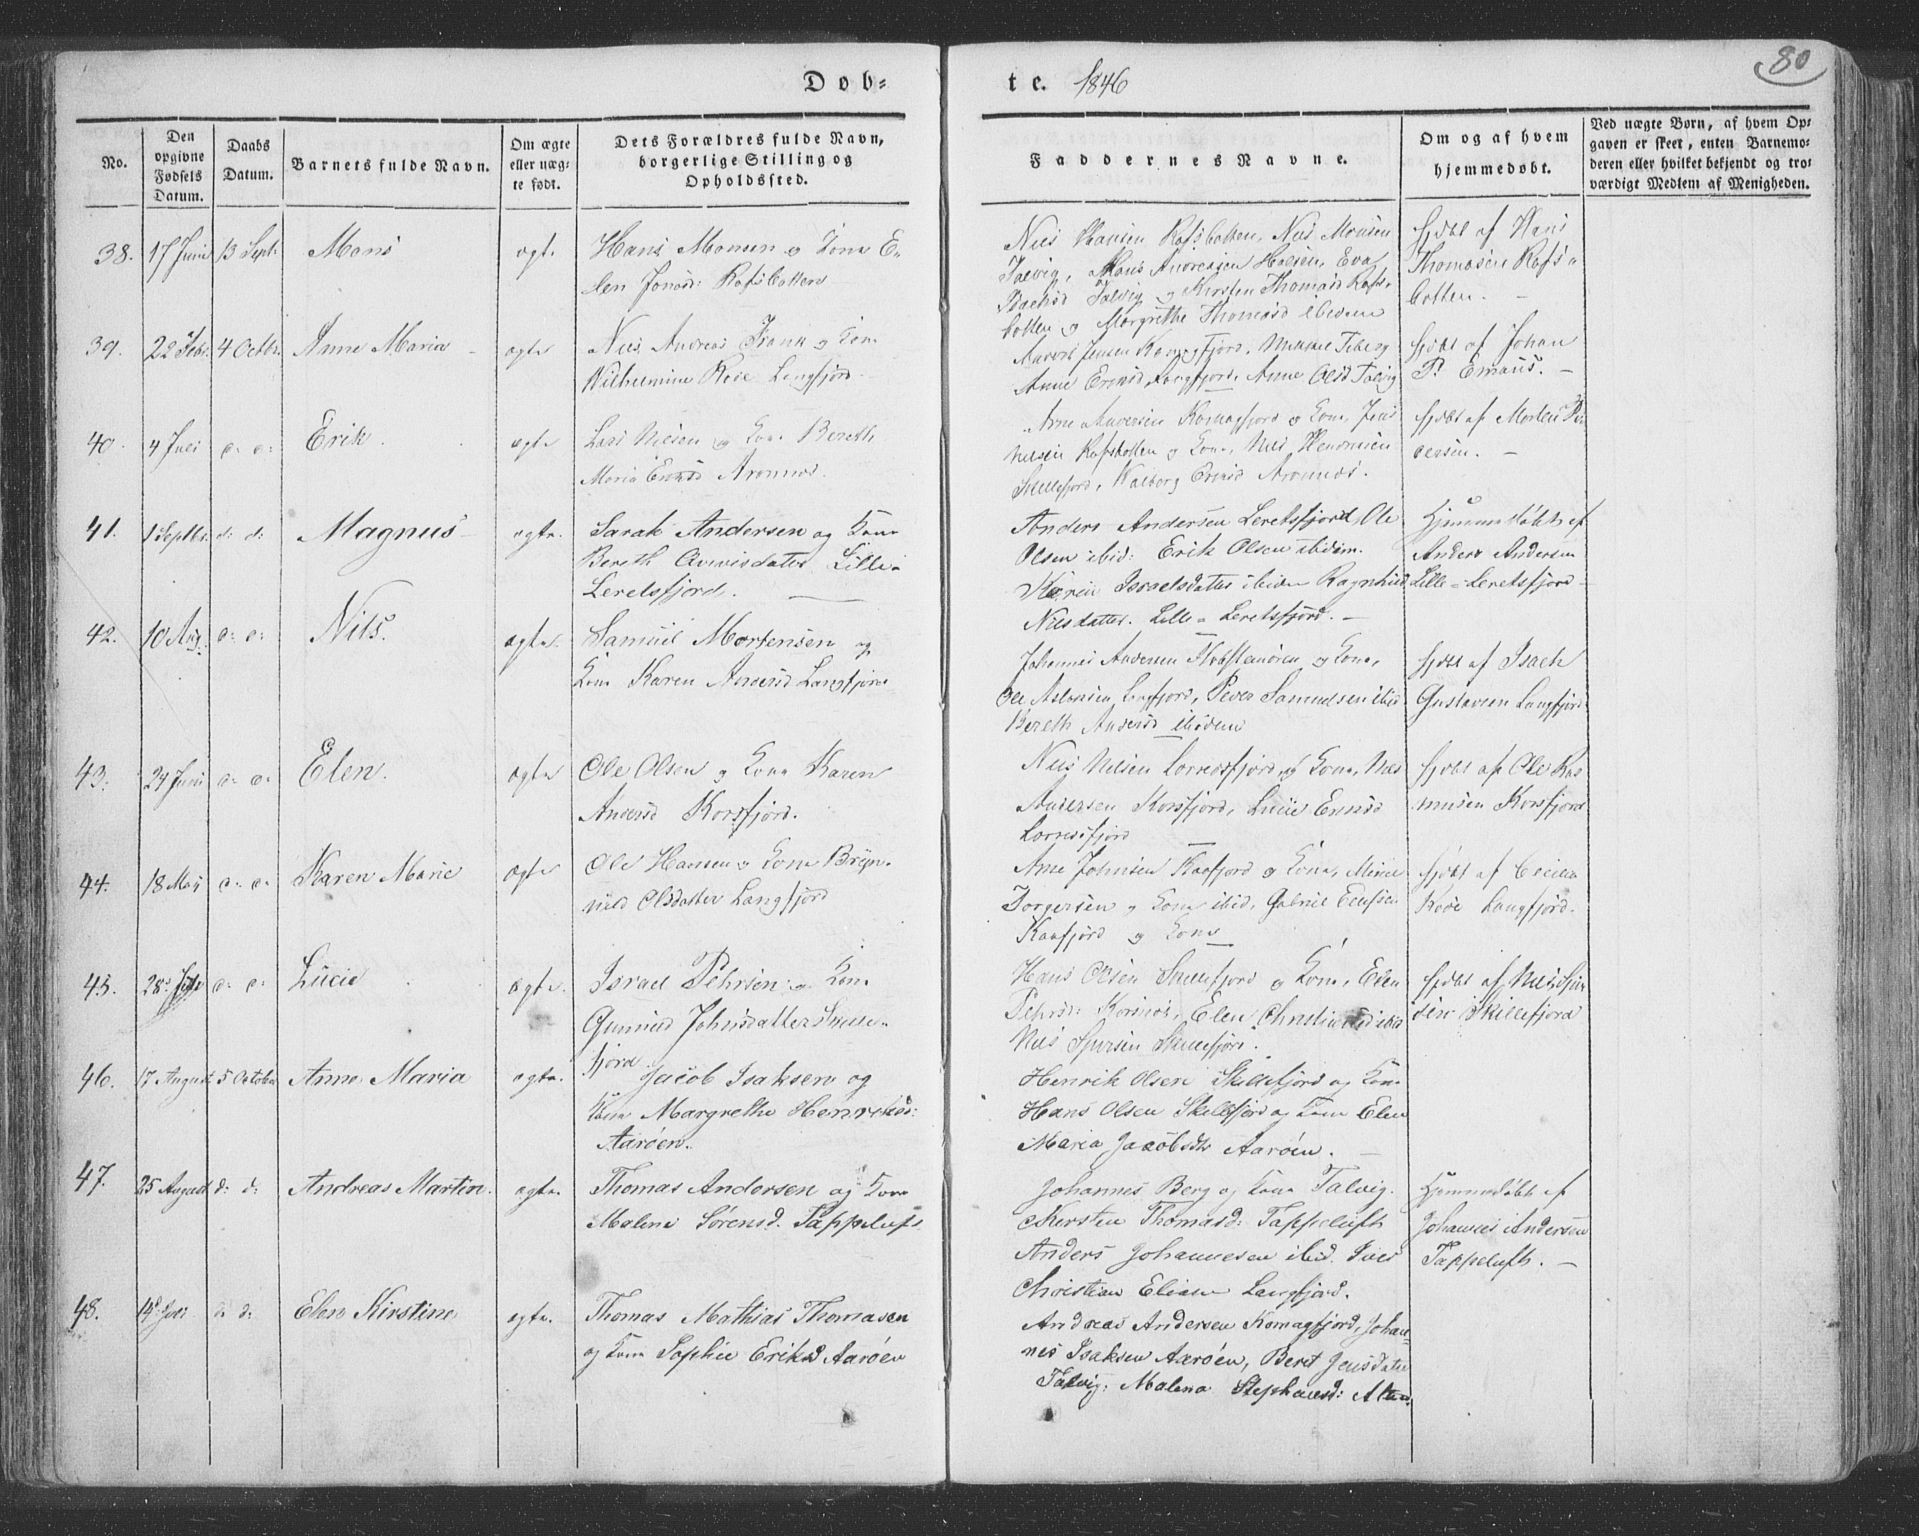 80
Døb-
te. 1846
No.
Den opgivne Fødsels Datum.
Daabs Datum.
Barnets fulde Navn.
Om ægte eller uægte født.
Dets Forældres fulde Navn, borgerlige Stilling og Opholdssted.
Faddernes Navne.
Om og af hvem hjemmedøbt.
Ved uægte Børn, af hvem Opgaven er skeet, enten Barnemoderen eller hvilket bekjendt og troværdigt Medlem af Menigheden.
38. 17 Juni 13 Sept. Mons ægte
Hans Monsen og Kone E-
len Jonsd: Rafsbotten
Nils Hansen Rafsbotten, Nils Monsen
Talvig, Hans Andreasen Halsen, Eva
Isachsd Talvig og Kirsten Thomasd Rafs-
botten og Margrethe Thomasd ibidem
hjdbt af Hans
Thomasen Rafs-
botten. -
39. 22 Febr. 4 Octbr. Anne Maria - ægte
Nils Andreas Frank og Kone
Wilhelmine Rode Langfjord -
Anders Jensen Komagfjord,
Anne Ericsd Langfjord, Anne Olsd Talvig
hjdbt af Johan
P. Emaus. -
40. 4 Juli d: d: Erik ægte
Lars Nilsen og Kone Bereth
Maria Ericsd Aronnes.
Arne Andersen Komagfjord og Kone, Jens
Nilsen Rafsbotten og Kone, Nils Hendriksen
Skillefjord, Walborg Ericsd Aronnes.
hjdbt af Morten Pe-
dersen. -
41. 1 Septbr. d: d: Magnus - ægte.
Sarak Andersen og Kone
Bereth Lille-
Leretsfjord.
Anders Andersen Leretsfjord, Ole
Olsen ibid: Erik Olsen ibidem.
Karen Israelsdatter ibidem Ragnhild
Nilsdatter. Lille - Leretsfjord. -
Hjemmedøbt af
Anders Andersen
Lille - Leretsfjord -
42. 10 Aug. d: d: Nils. ægte.
Samuel Mortensen og
Kone Karen Andersd Langfjord
Johannes Andersen og Kone,
Ole Aslaksen Langfjord, Peder Samuelsen ibid
Bereth Andersd ibidem
hjdbt af Isach
Gustavsen Langfjord
43. 24 Juni d: d: Elen. ægte
Ole Olsen og Kone Karen
Andersd Korsfjord.
Nils Nilsen Lerredsfjord, og Kone, Nils
Andersen Korsfjord, Lucie Ericsd
Lerredsfjord
hjdbt af Ole Ras-
musen Korsfjord
44. 18 Maj d: d: Karen Marie ægte
Ole Hansen og Kone Bryn-
hild Olsdatter Langfjord
Arne Johnsen Kaafjord og Kone,
Jørgensen og Kone ibid, Gabriel
Kaafjord og Kone
hjdbt af Cecilia
Rode Langfjord.
45. 28 d: d: Lucie ægte.
Israel Pehrsen og Kone
Gunnild Johnsdatter Skille-
fjord
Hans Olsen Skillefjord og Kone, Elen
Pehrsd: Korsnes, Elen Christiansd ibid
Nils Skillefjord.
hjdbt af Nils
sen Skillefjord
46. 17 August 5 October Anne Maria ægte.
Jacob Isaksen og
Kone Margrethe Henriksd:
Aarøen.
Henrik Olsen Skillefjord og Kone
Hans Olsen Skillefjord og Kone Elen
Maria Jacobsdtr Aarøen. -
47. 25 August d: d: Andreas Martin. ægte.
Thomas Andersen og Kone
Malene Sørensd. Tappeluft
Johannes Berg og Kone Talvig.
Kirsten Thomasd: Tappeluft
Anders Johannesen ibid.
Christian Langfjord.
Hjemmedøbt af
Johannes Andersen
Tappeluft. -
48. 14 Juli d: d: Elen Kirstine ægte.
Thomas Mathias Thomasen
og Kone Sophie Eriksd Aarøen
Andreas Andersen Komagfjord, Johan-
nes Isaksen Aarøen, Beret Jensdatter
Talvig: Malena Stephansd: Alten.